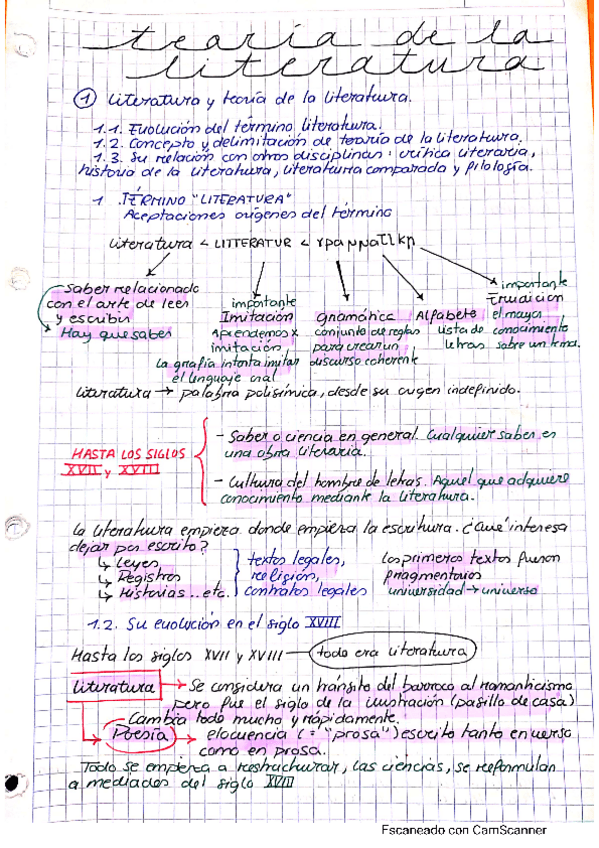 teoría de la
literatura
① Literatura y teoría de la literatura.
1.1. Evolución del término literatura.
1.2. Concepto y delimitación de teoría de la literatura.
1.3. Su relación con otras disciplinas: crítica literaria,
historia de la literatura, literatura comparada y filología.
1. TÉRMINO "LITERATURA"
Aceptaciones orígenes del término
Literatura < LITTERATUR < γραμματικη
Saber relacionado
con el arte de leer
y escribir
Hay que saber
importante
Imitación
Aprendemos x
imitación
La grafía intenta imitar
el lenguaje oral
gramática
conjunto de reglas
para crear un
discurso coherente
Alfabeto
lista de
letras
importante
Erudición
el mayor
conocimiento
sobre un tema.
Literatura → palabra polisímica, desde su origen indefinido.
HASTA LOS SIGLOS
XVII y XVIII
- Saber o ciencia en general. Cualquier saber es
una obra literaria.
- Cultura del hombre de letras. Aquel que adquiere
conocimiento mediante la literatura.
La literatura empieza donde empieza la escritura. ¿Qué interesa
dejar por escrito?
↳ Leyes
↳ Registros
↳ Historias... etc.
textos legales,
religión,
contratos legales
Los primeros textos fueron
fragmentarios
universidad → universo
1.2. Su evolución en el siglo XVIII
Hasta los siglos XVII y XVIII — todo era literatura
Literatura → Se considera un tránsito del barroco al romanticismo
pero fue el siglo de la ilustración (pasillo de casa)
Cambia todo mucho y rápidamente.
Poesía → elocuencia (= "prosa") escrito tanto en verso
como en prosa.
Todo se empieza a restructurar, las ciencias, se reformulan
a mediados del siglo XVIII
Escaneado con CamScanner